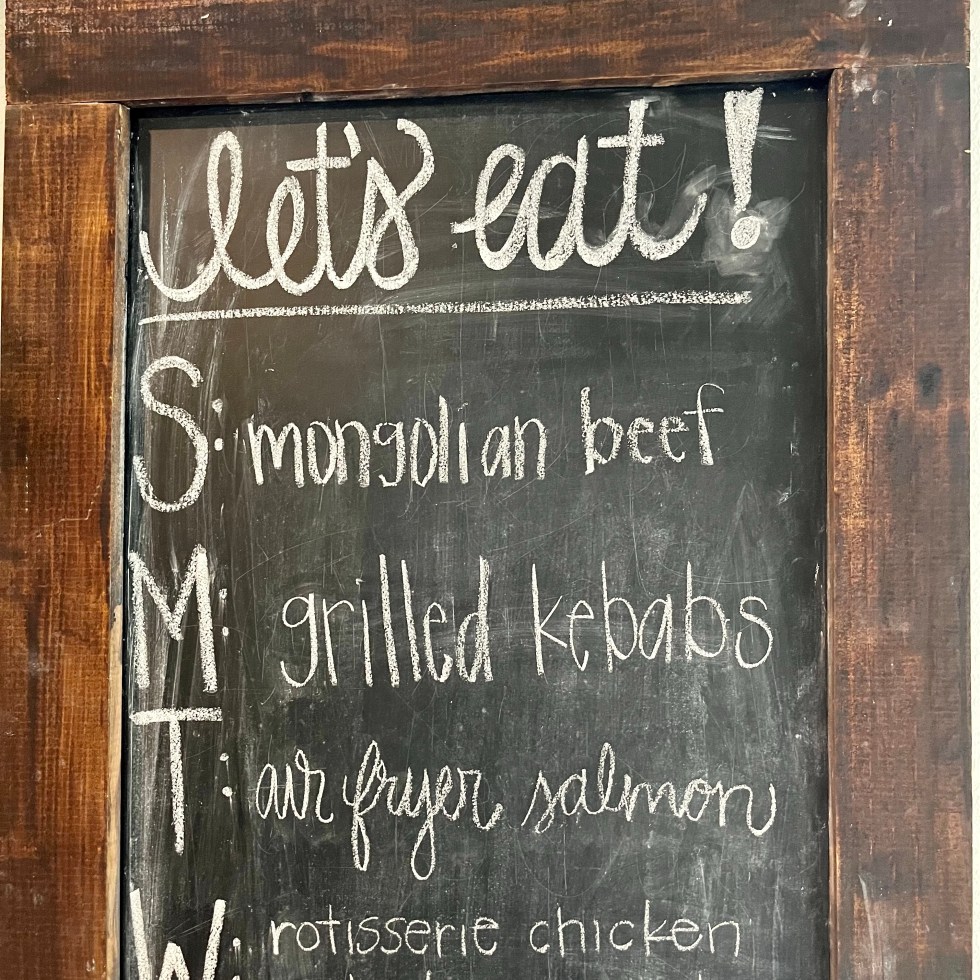 let's eat!
S: mongolian beef
M: grilled kebabs
T: air fryer salmon
W: rotisserie chicken